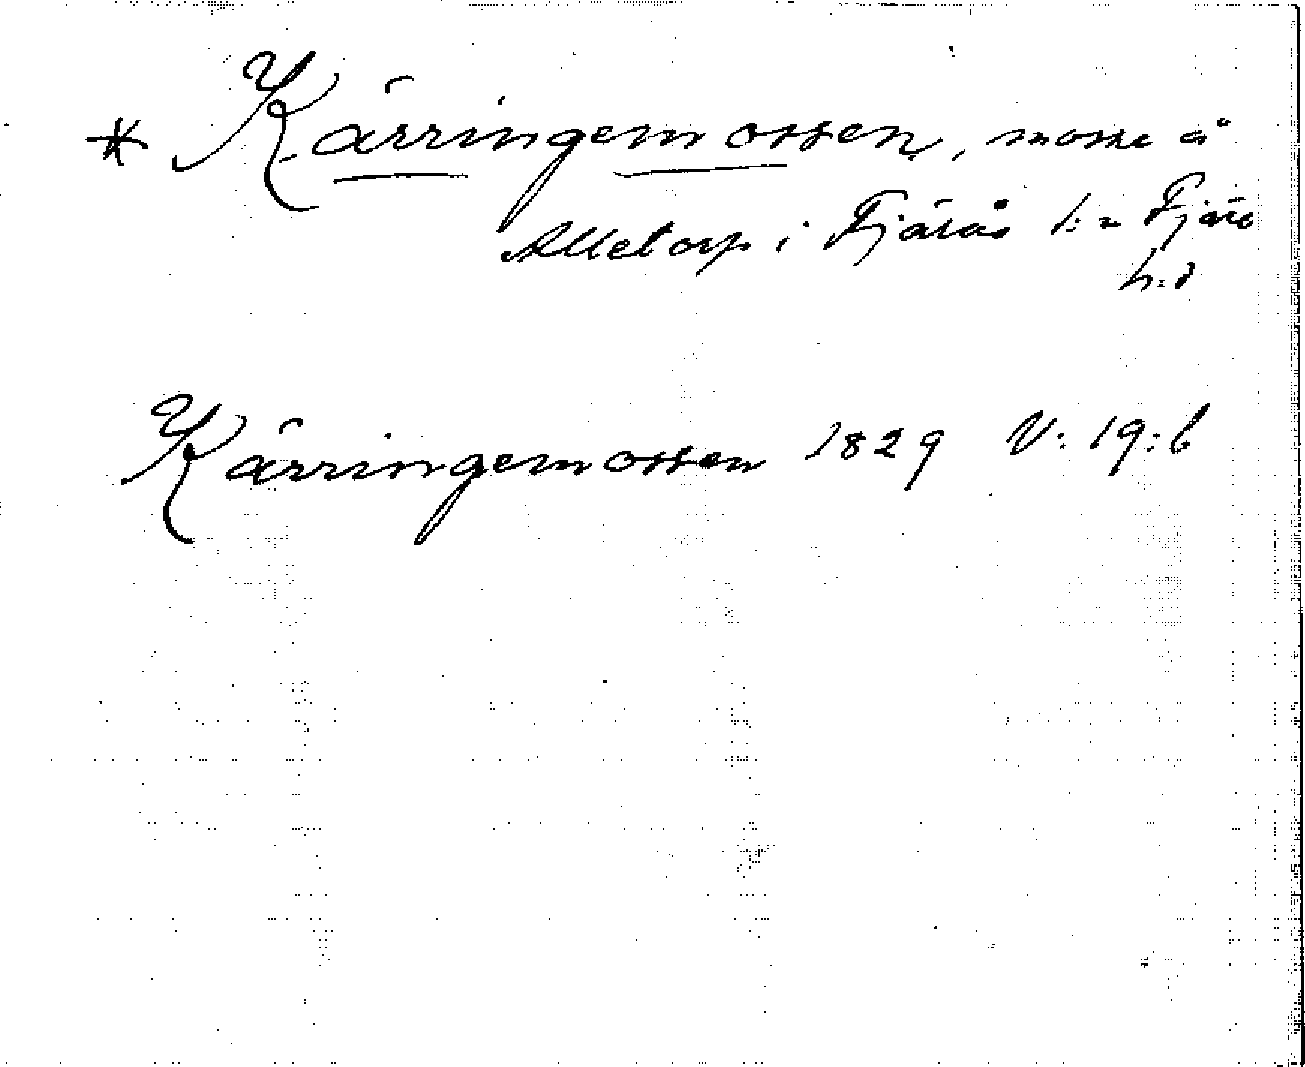 * Kärringemossen, mosse å
Alletorp i Fjärås s:n Fjäre
h:d
Kärringemossen 1829 V: 19:6